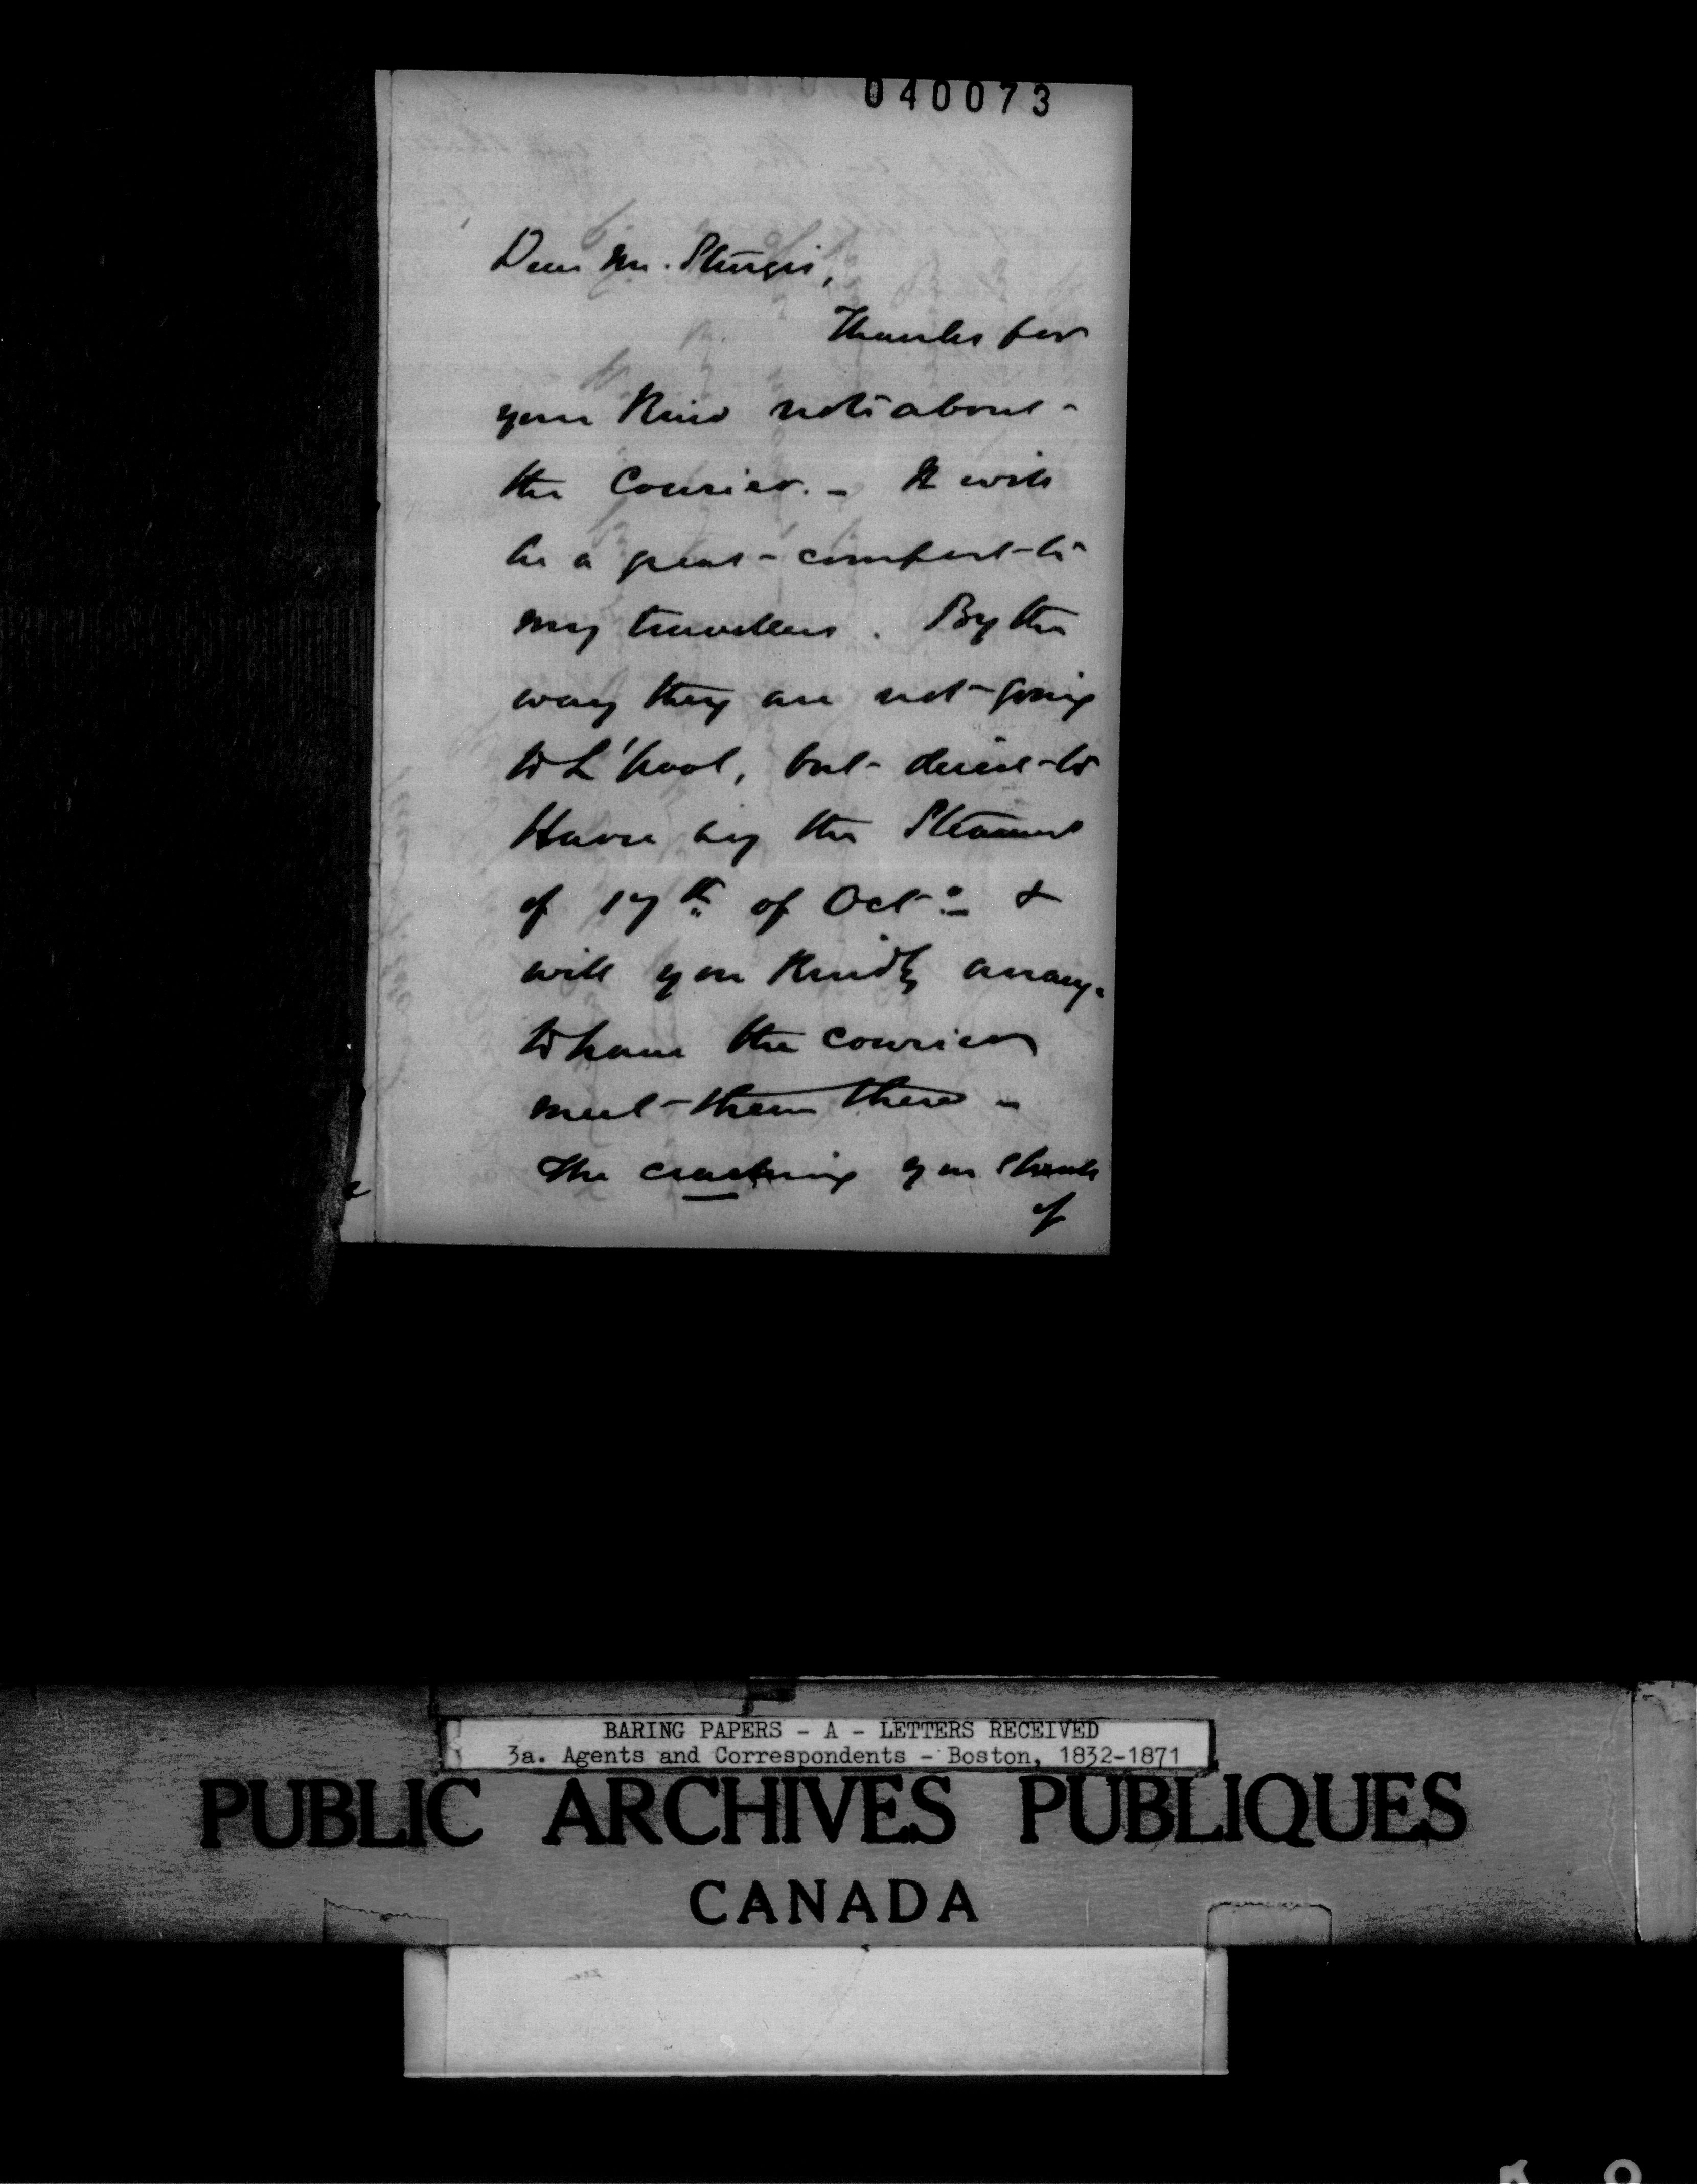 040073
Dear Mr. Sturgis,
Thanks for
your kind note about
the Courier. - It will
be a great comfort to
my travellers. By the
way they are not going
to L'pool, but direct to
Havre by the Steamer
of 17th of Oct. &
will you kindly arrange
to have the courier
meet them there -
The crashing you
of
BARING PAPERS - A - LETTERS RECEIVED
3a. Agents and Correspondents - Boston, 1832-1871
PUBLIC ARCHIVES PUBLIQUES
CANADA